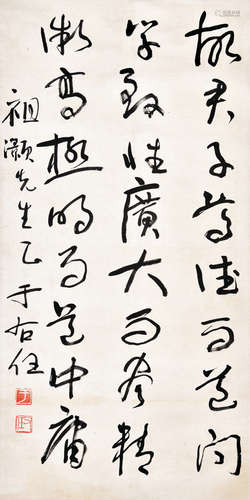 故君子尊德而道問
學致性廣大而盡精
微高極明而道中庸
祖灝先生正 于右任